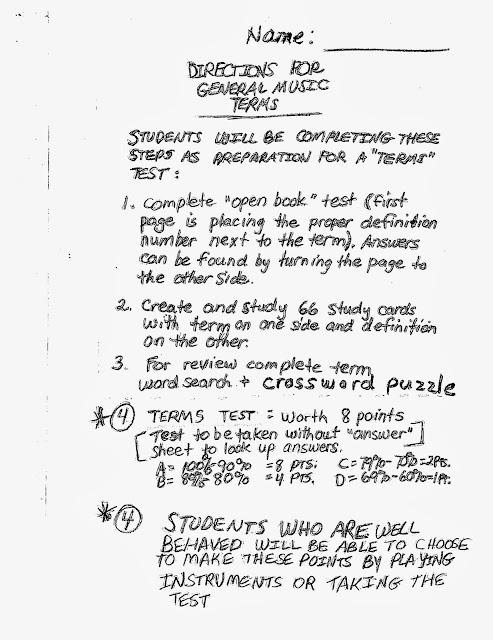 Name: ____________
DIRECTIONS FOR
GENERAL MUSIC
TERMS
STUDENTS WILL BE COMPLETING THESE
STEPS AS PREPARATION FOR A "TERMS"
TEST:
1. Complete "open book" test (first
page is placing the proper definition
number next to the term). Answers
can be found by turning the page to
the other side.
2. Create and study 66 study cards
with term on one side and definition
on the other.
3. For review complete term
word search + crossword puzzle
* 4 TERMS TEST = worth 8 points
[Test to be taken without "answer"
sheet to look up answers.]
A = 100%-90% = 8 PTS. C = 79%-70% = 2 PTS.
B = 89%-80% = 4 PTS. D = 69%-60% = 1 PT.
* 4 STUDENTS WHO ARE WELL
BEHAVED WILL BE ABLE TO CHOOSE
TO MAKE THESE POINTS BY PLAYING
INSTRUMENTS OR TAKING THE
TEST